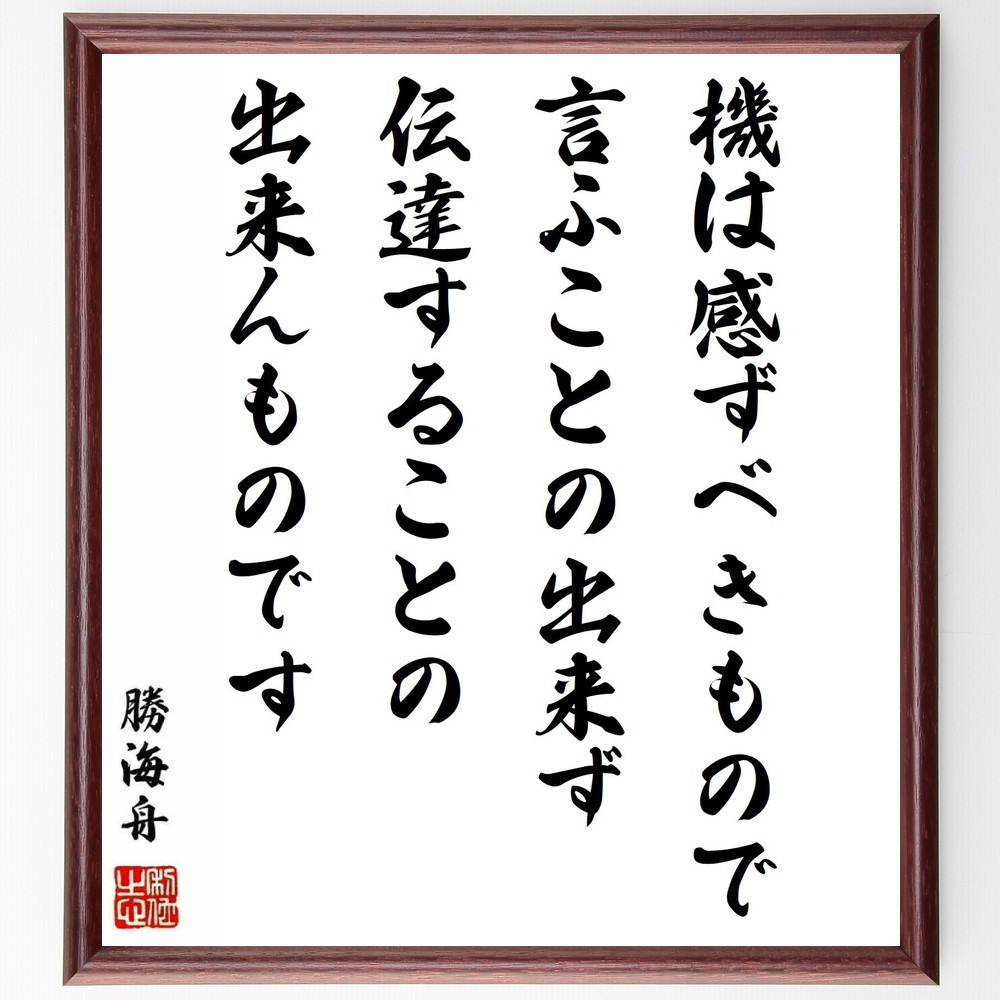 機は感ずべきもので
言ふことの出来ず
伝達することの
出来んものです
勝海舟